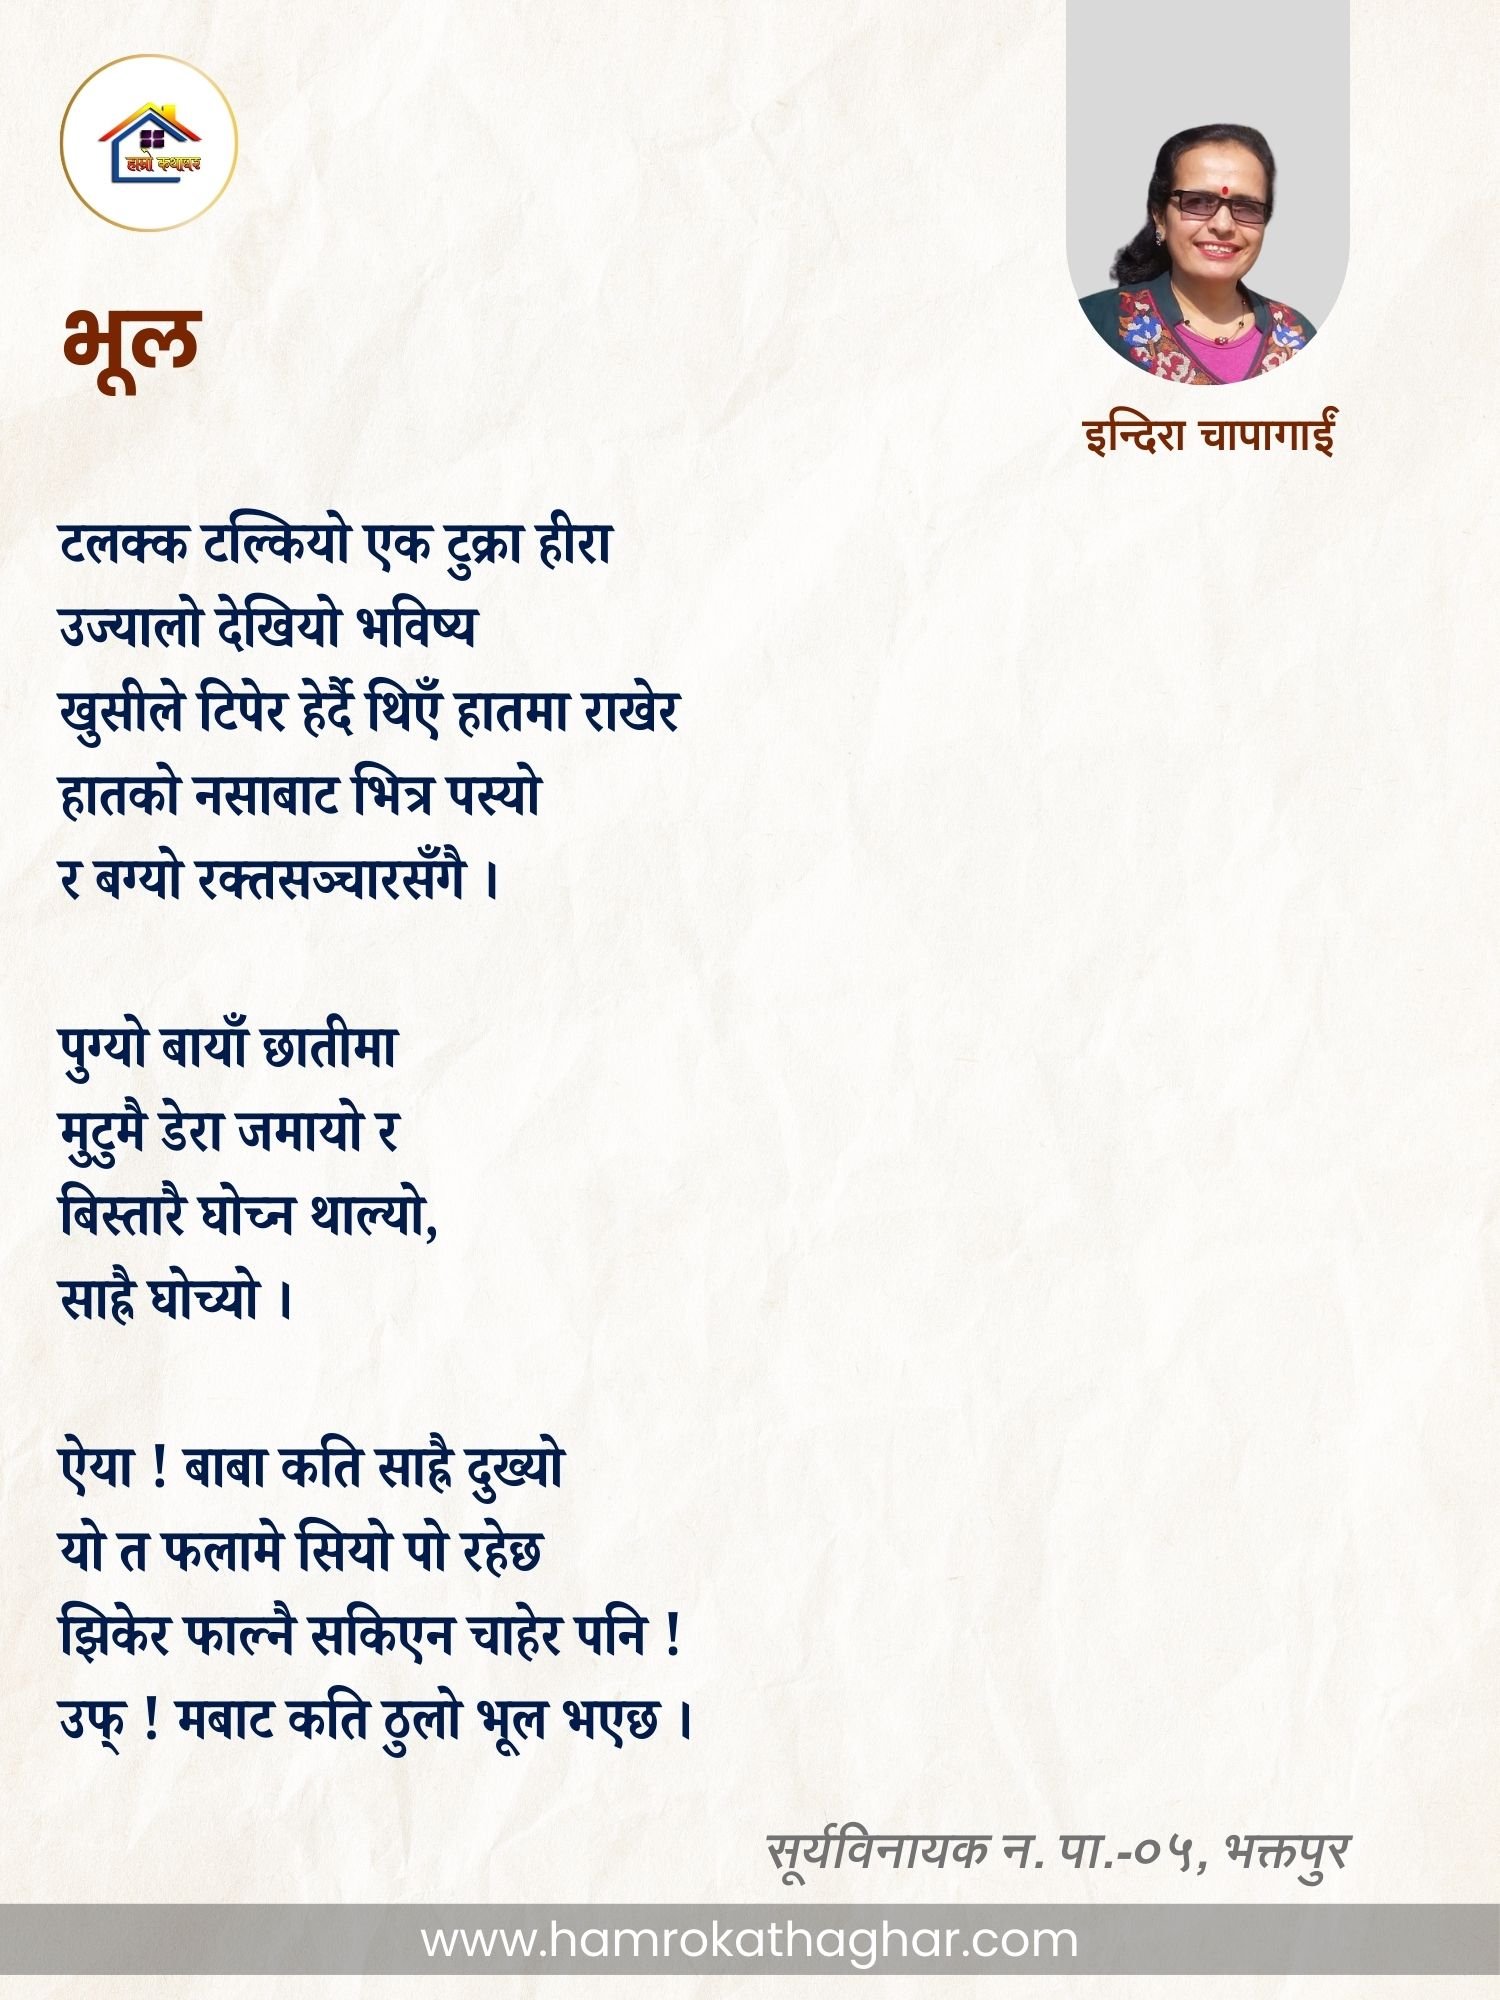 हाम्रो कथाघर
भूल
इन्दिरा चापागाईं
टलक्क टल्कियो एक टुक्रा हीरा
उज्यालो देखियो भविष्य
खुसीले टिपेर हेर्दै थिएँ हातमा राखेर
हातको नसाबाट भित्र पस्यो
र बग्यो रक्तसञ्चारसँगै ।
पुग्यो बायाँ छातीमा
मुटुमै डेरा जमायो र
बिस्तारै घोच्न थाल्यो,
साह्रै घोच्यो ।
ऐया ! बाबा कति साह्रै दुख्यो
यो त फलामे सियो पो रहेछ
झिकेर फाल्नै सकिएन चाहेर पनि !
उफ् ! मबाट कति ठुलो भूल भएछ ।
सूर्यविनायक न. पा.-०५, भक्तपुर
www.hamrokathaghar.com